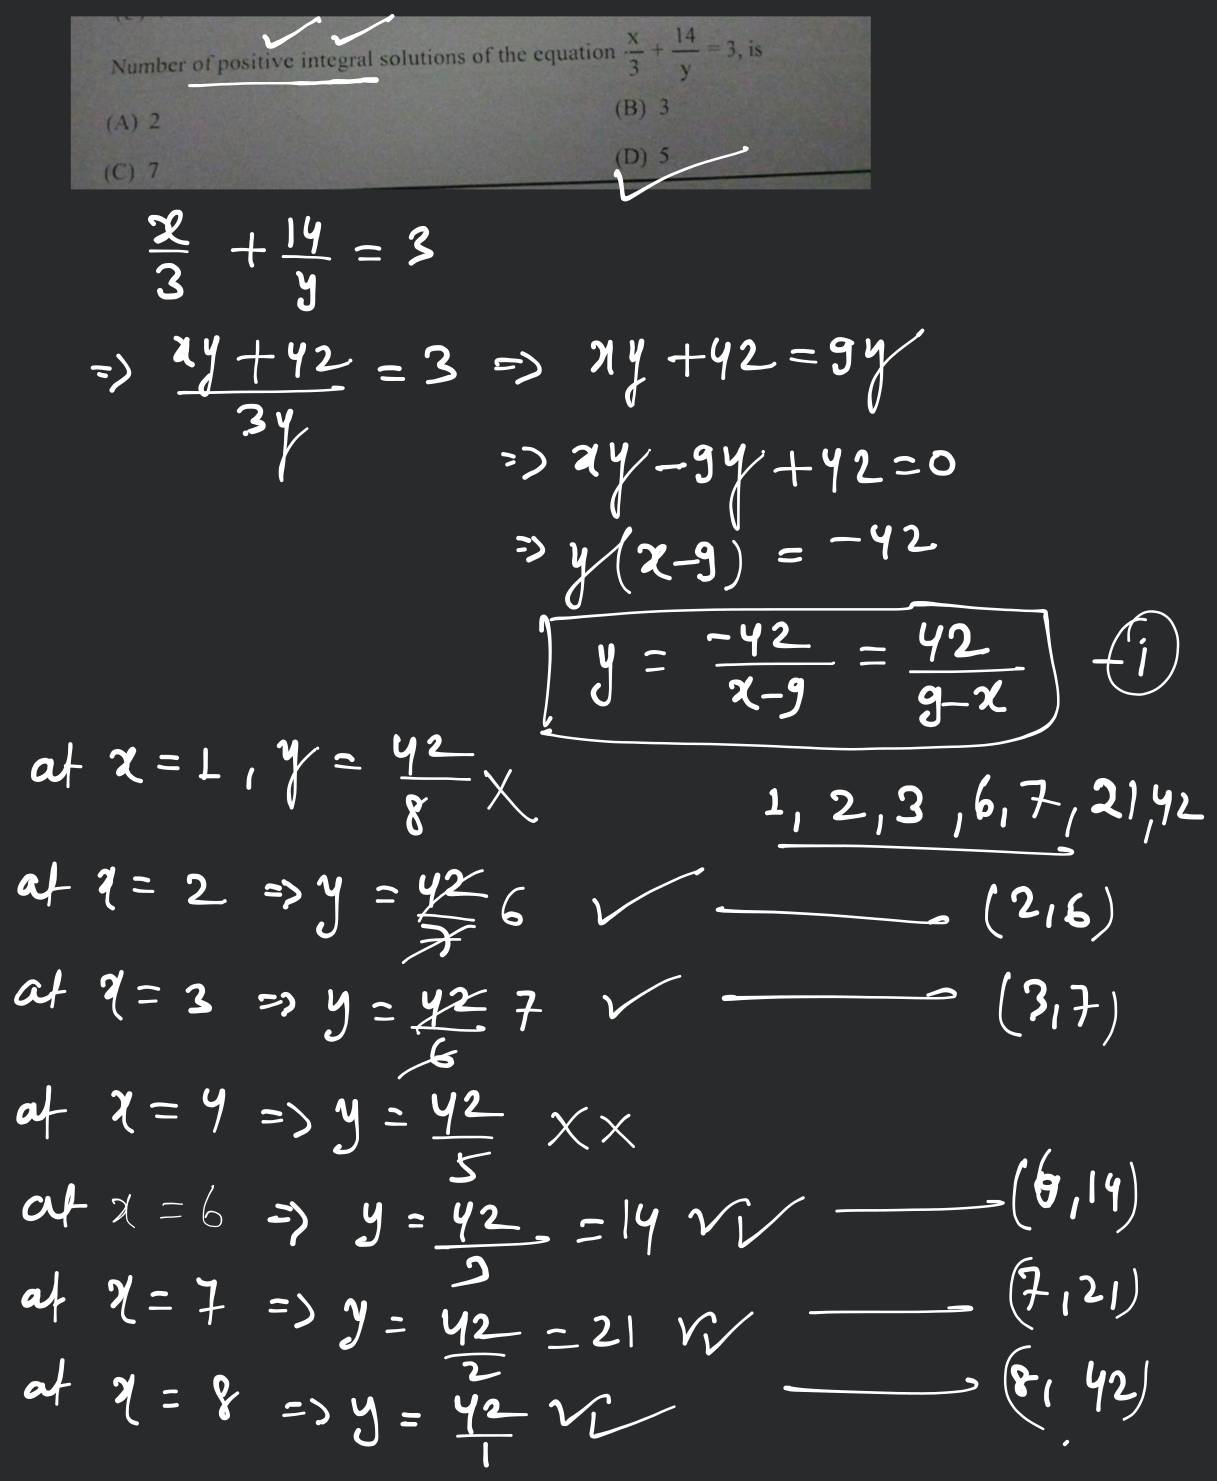 Number of positive integral solutions of the equation x/3 + 14/y = 3, is
(A) 2 (B) 3
(C) 7 (D) 5
x/3 + 14/y = 3
=> (xy + 42)/3y = 3 => xy + 42 = 9y
=> xy - 9y + 42 = 0
=> y(x-9) = -42
y = -42/(x-9) = 42/(9-x) — (i)
at x = 1, y = 42/8 ×
1, 2, 3, 6, 7, 21, 42
at x = 2 => y = 42/7 6 ✓ — (2,6)
at x = 3 => y = 42/6 7 ✓ — (3,7)
at x = 4 => y = 42/5 ××
at x = 6 => y = 42/3 = 14 ✓✓ — (6,14)
at x = 7 => y = 42/2 = 21 ✓✓ — (7,21)
at x = 8 => y = 42/1 ✓✓ — (8, 42)